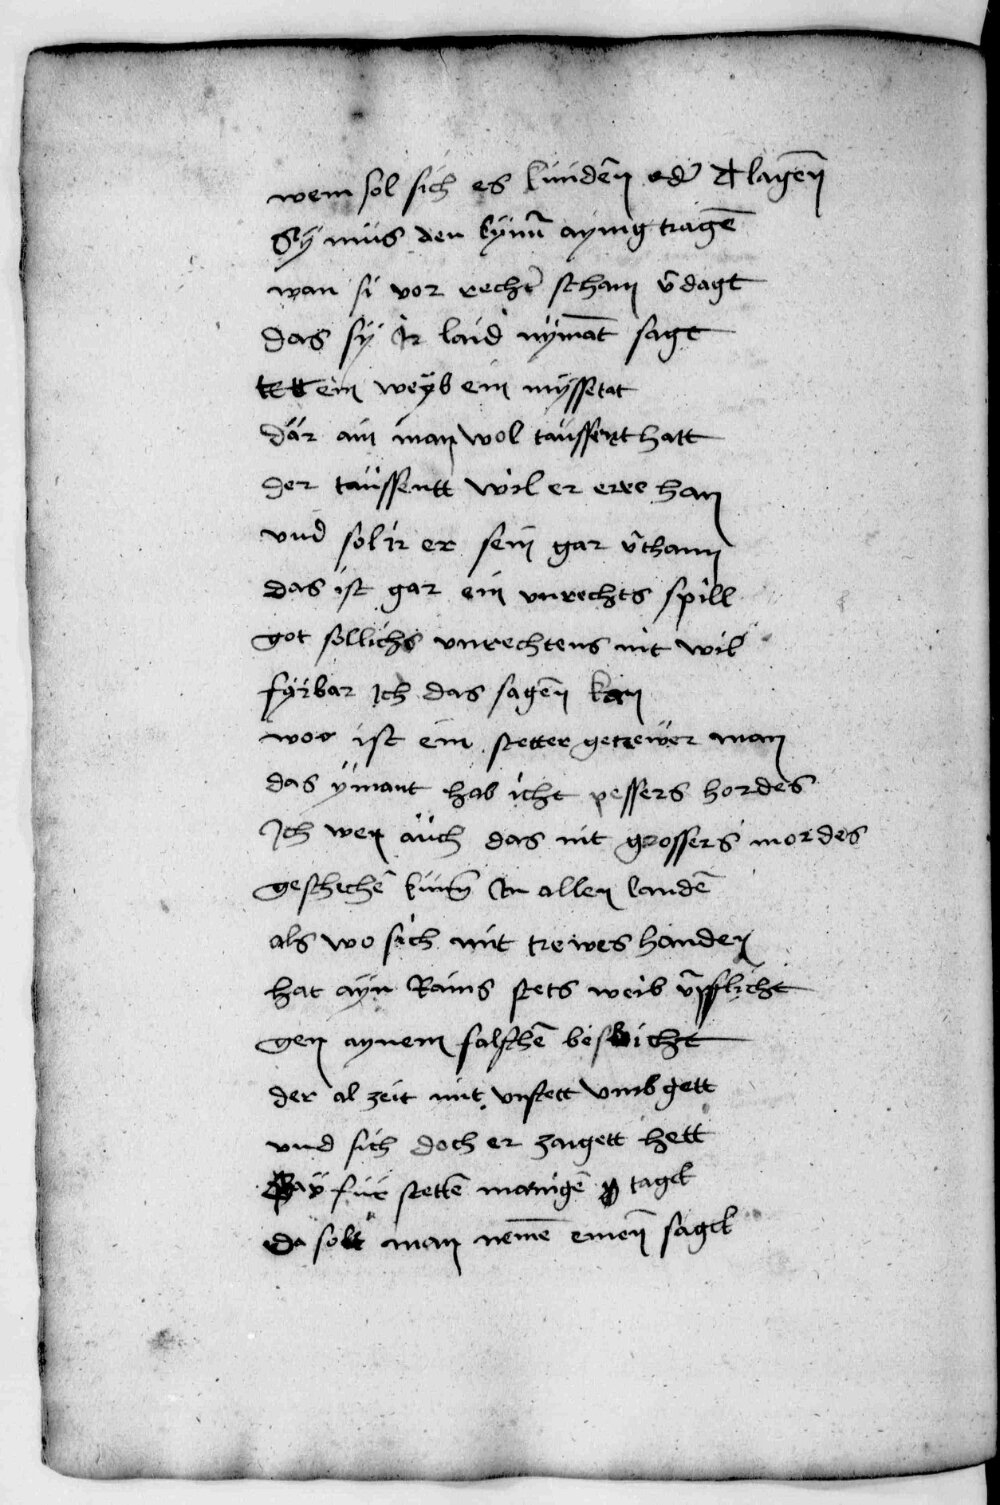 wem sol sich es kundēn oder klagēn
Sÿ mus den kumꝰ aynig tragē
wan si vor rechtꝰ scham v̄dagt
das sÿ Ir laid nÿmāt sagt
tett ein weÿb ein mÿssetat
där ain man wol taüssent hatt
der taüssentt wil er eree han
vnd sol ir er sein gar v̄thann
das ist gar ein vnrechts spill
got sollichs vnrechtens nit wil
fÿrbar Ich das sagēn kan
woe ist ein stetter getrewer man
das ÿmant hab icht pessers hordes
Ich wen aüch das nit grossers mordes
geschechē kūm̄ In allen landē
als wo sich mit trewes handen
hat ayn Rains stets weib v̄pflicht
gen aynem falschē beswicht
der al zeit mit vnstett vmbgett
vnd sich doch er zaigett hett
für stettē manigē tagk
da solt man nemē einēn sagk